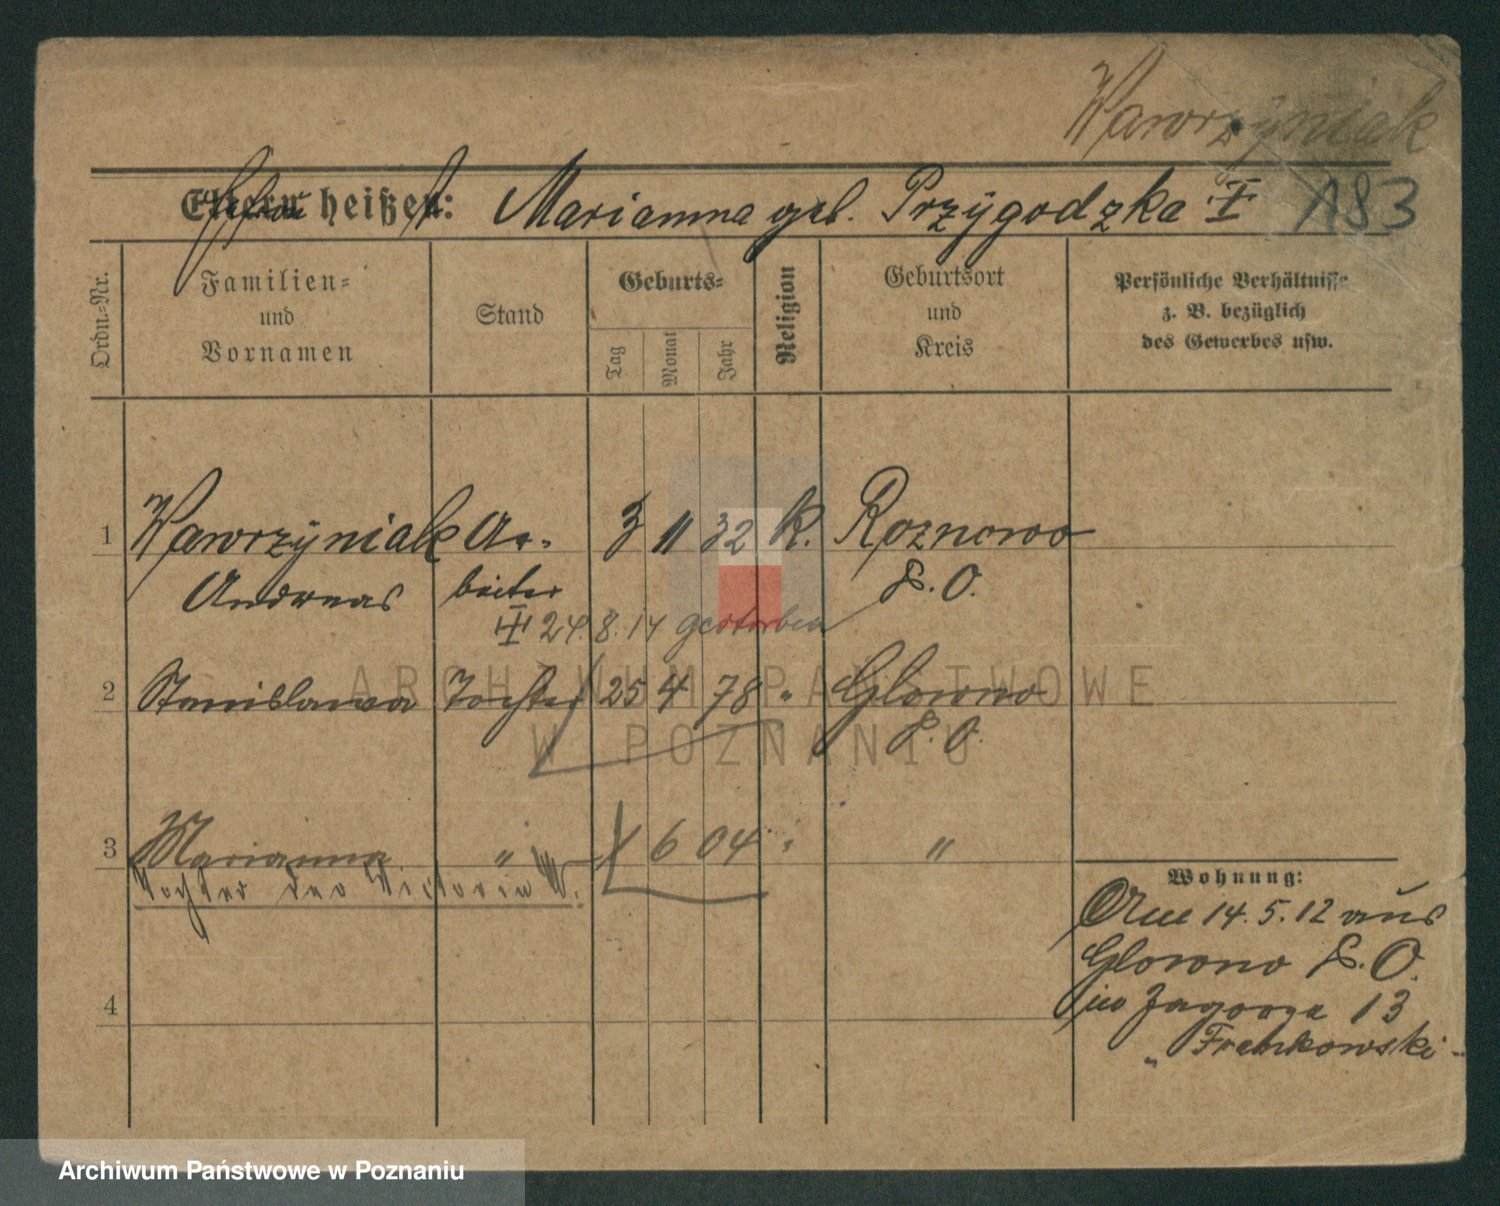 Wawrzyniak
Eltern heißen: Marianna geb. Przygodzka 183
Ordn.-Nr.
Familien=
und
Vornamen
Stand
Geburts=
Tag
Monat
Jahr
Religion
Geburtsort
und
Kreis
Persönliche Verhältnisse
z. B. bezüglich
des Gewerbes usw.
1 Wawrzyniak Ar- 3 11 32 K. Roznowo
Andreas beiter P. O.
24.8.14 gestorben
2 Stanislawa Tochter 25 4 78 " Glowno
P. O.
3 Marianna " 6 04 " "
Tochter der Victoria W.
Wohnung:
14.5.12 aus
Glowno P. O.
Zagorze 13
" Frankowski -
4
ARCHIWUM PAŃSTWOWE
W POZNANIU
Archiwum Państwowe w Poznaniu